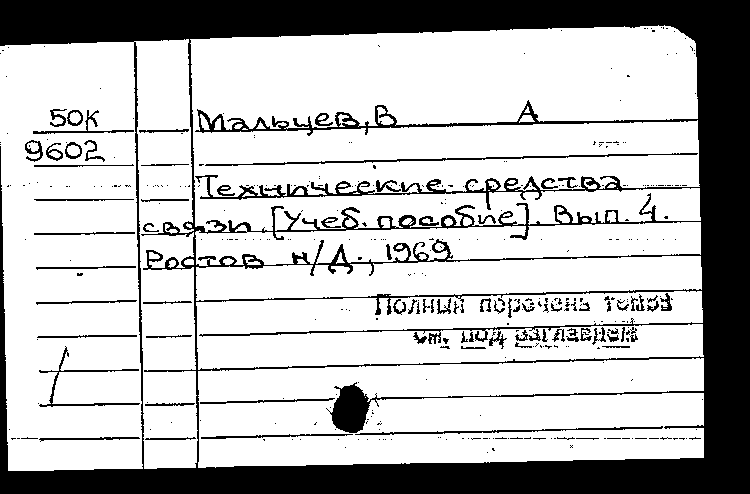 50К Мальцев, В А
9602
Технические средства
связи. [Учеб. пособие]. Вып. 4.
Ростов н/Д., 1969
Полный перечень томов
см. под заглавием